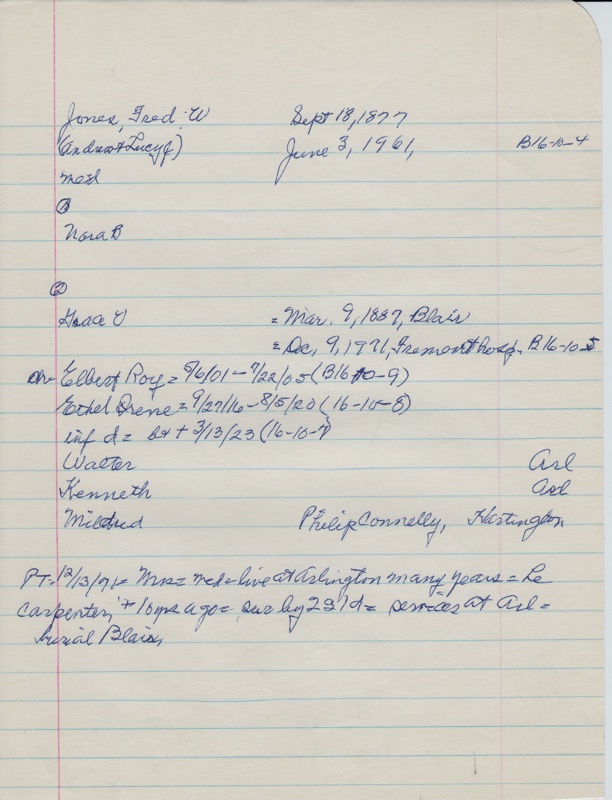 Jones, Fred W Sept 18, 1877
(Andrew + Lucy J) June 3, 1961, B16-10-4
med
①
Nora B
②
Grace O = Mar. 9, 1887, Blair
= Dec, 9, 1971, Fremont hosp. B16-10-5
ch= Elbert Roy = 5/6/01 - 7/22/05 (B16-10-9)
Ethel Irene = 9/27/16 - 8/5/20 (16-10-8)
inf d = b + 3/13/23 (16-10-7)
Walter Arl
Kenneth Arl
Mildred Philip Connelly, Hartington
PT- 12/13/71 = Mrs = med = live at Arlington many years = he
carpenter, + 10 yrs ago = sur by 2s 1d = services at Arl =
burial Blair,